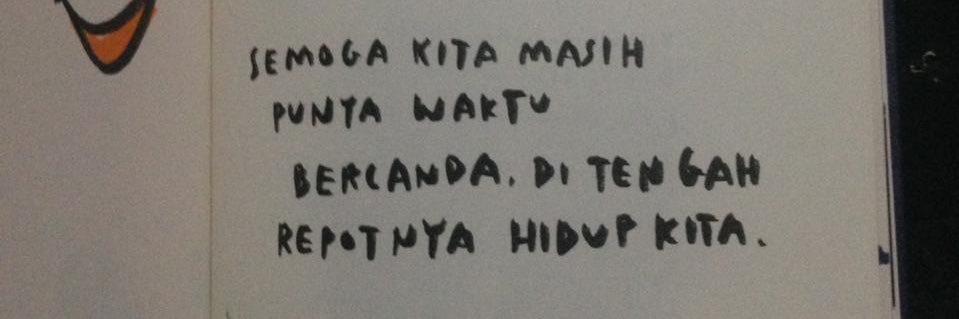 SEMOGA KITA MASIH
PUNYA WAKTU
BERCANDA. DI TENGAH
REPOTNYA HIDUP KITA.